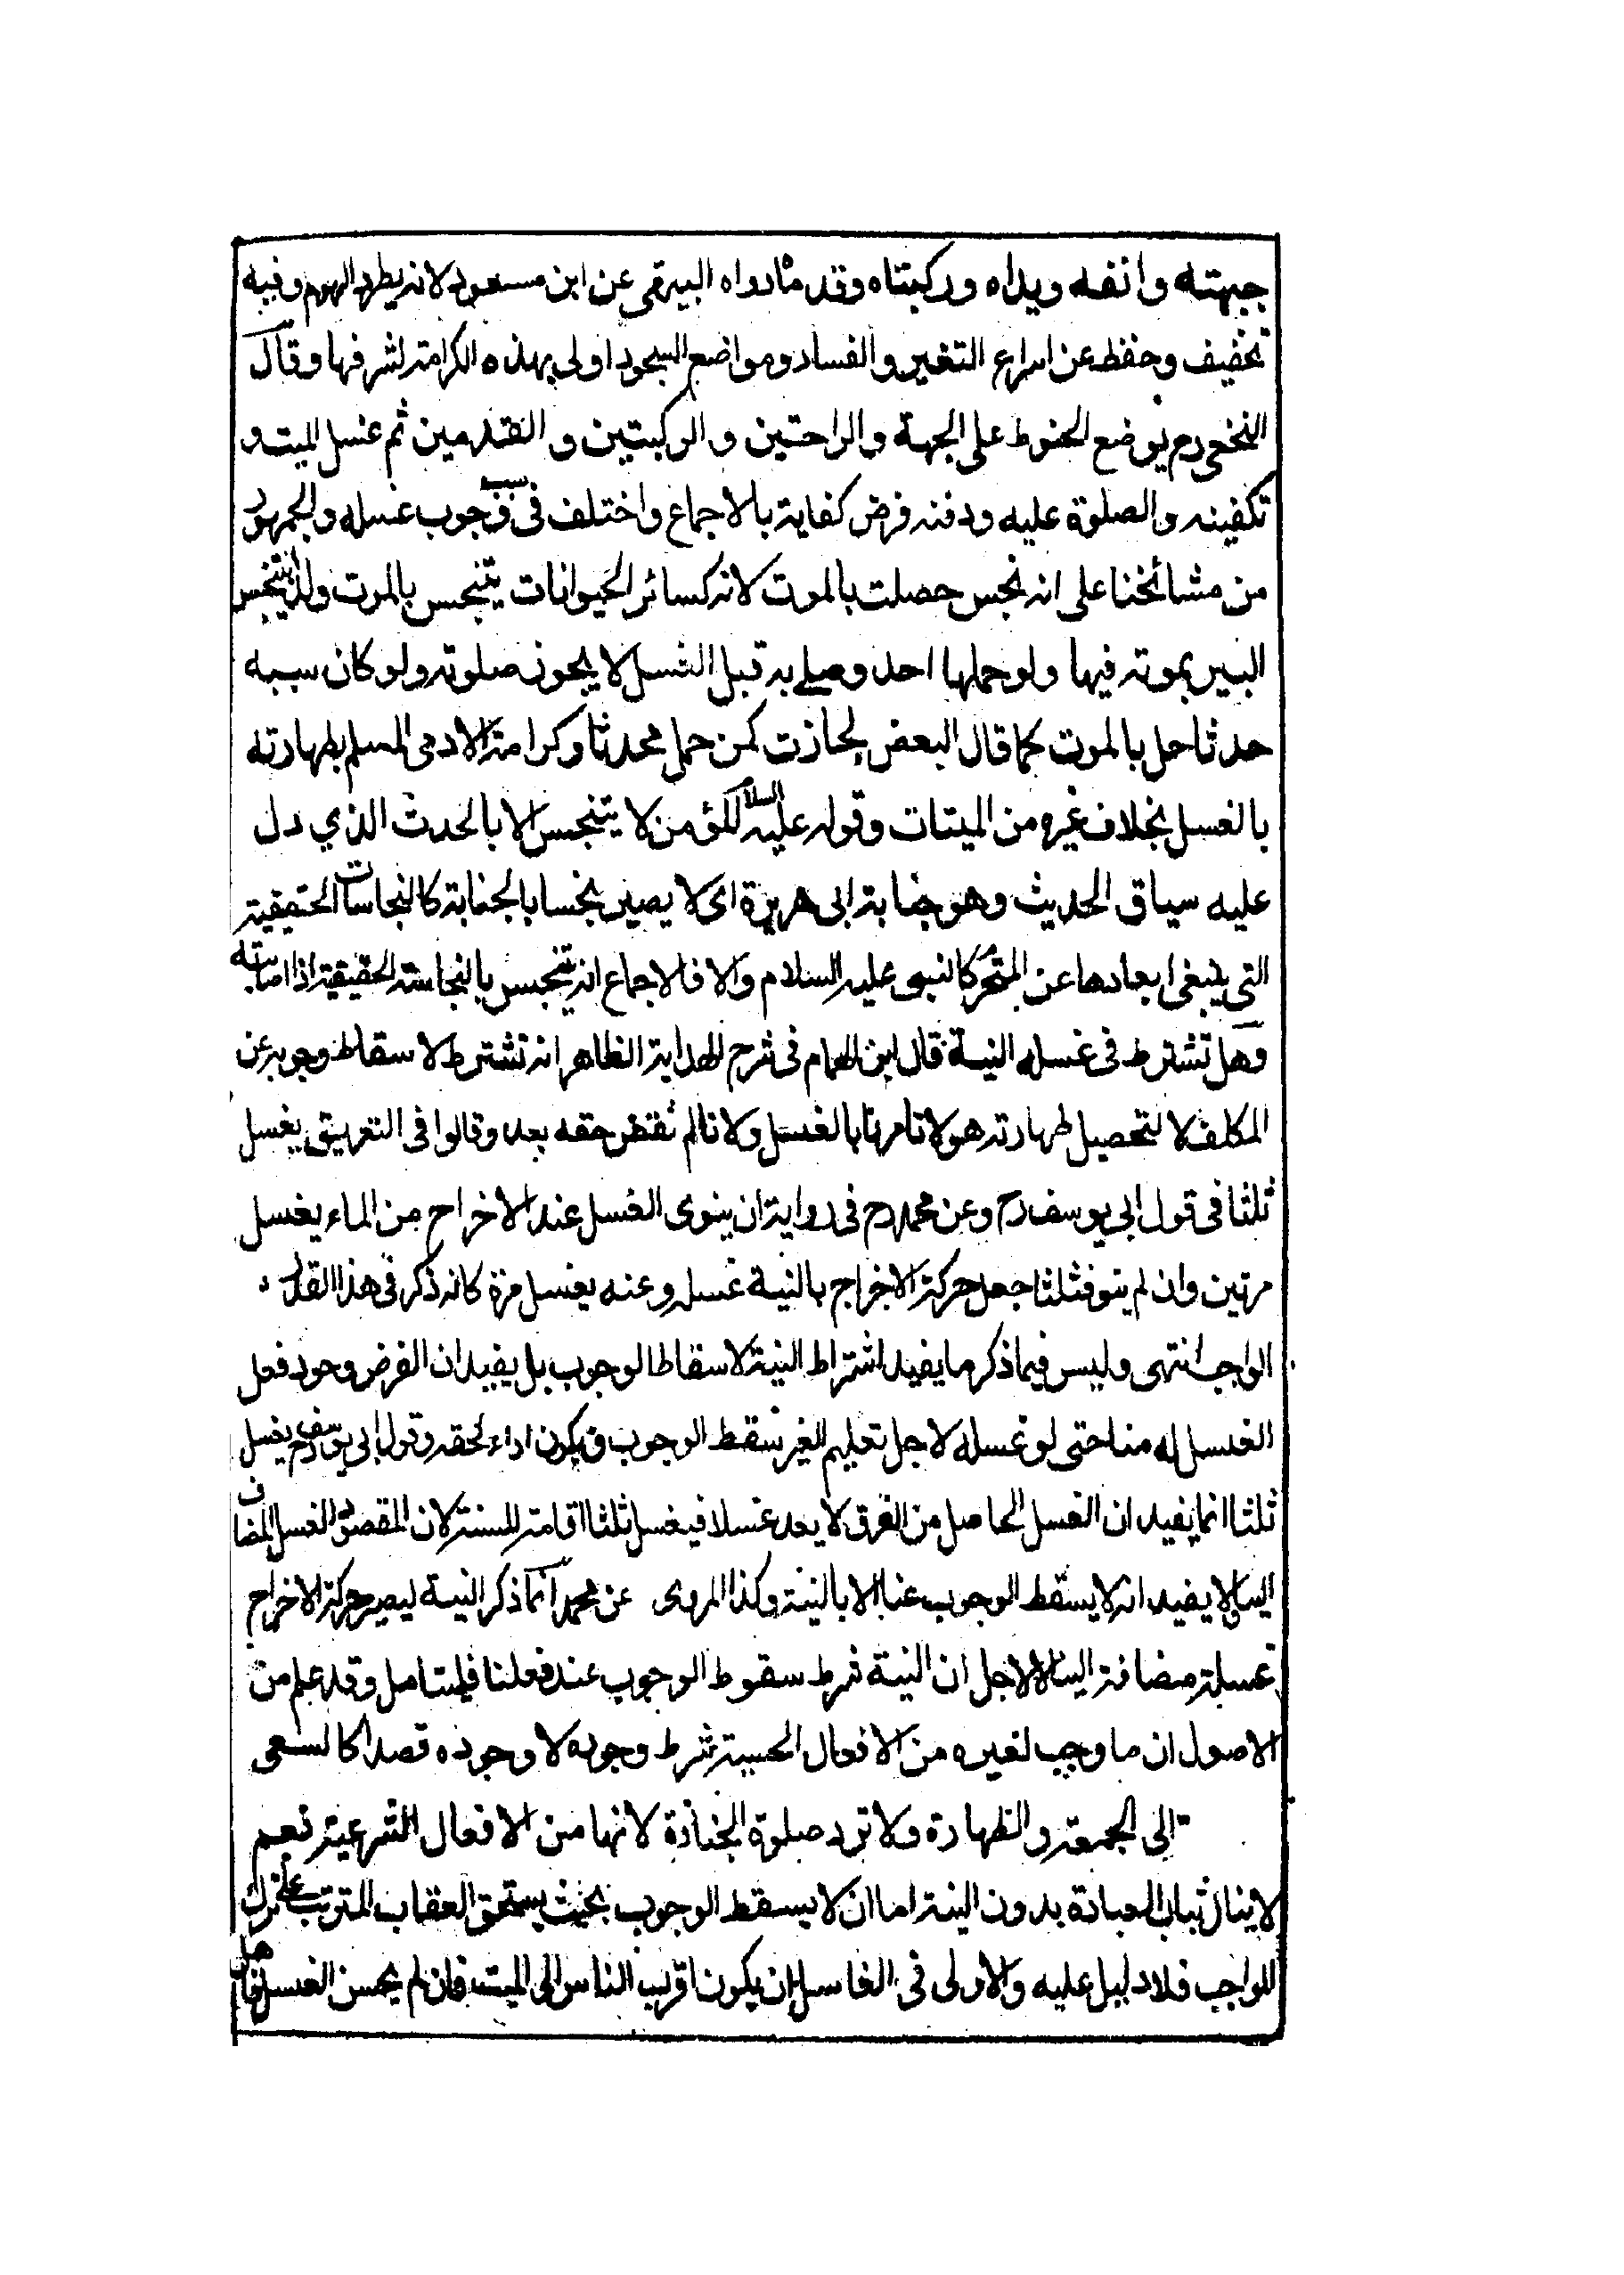 جبهته وانفه ويداه وركبتاه وقدماه رواه البيهقى عن ابن مسعود لانه يطرد الهوام وفيه
تخفيف وحفظ عن اسراع التغير والفساد ومواضع السجود اولى بهذه الكرامة لشرفها وقال
النخعى رح يوضع الحنوط على الجبهة والراحتين والركبتين والقدمين ثم غسل الميت و
تكفينه والصلوة عليه ودفنه فرض كفاية بالاجماع واختلف فى سبب وجوب غسله والجمهور
من مشائخنا على انه نجس حصلت بالموت لانه كسائر الحيوانات يتنجس بالموت ولذا يتنجس
البير بموته فيها ولو حملها احد وصلى به قبل الغسل لا يجوز صلوته ولو كان سببه
حدثا حل بالموت كما قال البعض لجازت كمن حمل محدثا وكرامة الادمى المسلم بطهارته
بالغسل بخلاف غيره من الميتات وقوله عليه السلام المؤمن لا يتنجس الا بالحدث الذي دل
عليه سياق الحديث وهو جنابة ابى هريرة اى لا يصير نجسا بالجنابة كالنجاسات الحقيقية
التى ينبغى ابعادها عن المتحرم كالنبى عليه السلام والا فالاجماع انه يتنجس بالنجاسة الحقيقية اذا اصابته
وهل تشترط فى غسله النية قال ابن الهمام فى شرح الهداية الظاهر انه تشترط لاسقاط وجوبه عن
المكلف لا لتحصيل طهارته هو لانا مرنا بالغسل ولانا لم نقض حقه بعد وقالوا فى التغريق يغسل
ثلثا فى قول ابى يوسف رح وعن محمد رح فى رواية ان ينوى الغسل عند الاخراح من الماء يغسل
مرتين وان لم ينو فثلثا جعل حركة الاخراج بالنية غسله وعنه يغسل مرة كانه ذكر فى هذا القدر
الواجب انتهى وليس فيما ذكر ما يفيد اشتراط النية لاسقاط الوجوب بل يفيد ان الفرض وحود فعل
الغسل له منا حتى لو غسله لاجل تعليم الغير سقط الوجوب فيكون اداء لحقه وقول ابى يوسف رح يغسل
ثلثا انما يفيد ان الغسل الحاصل من الغرق لا يعد غسلا فيغسل ثلثا اقامة للسنة لان المقصود الغسل المضاف
الينا ولا يفيد انه لا يسقط الوجوب عنا الا بالنية وكذا المروى عن محمد انما ذكر النية ليصير حركة الاخراج
غسلة مضافة الينا لا لاجل ان النية شرط سقوط الوجوب عند فعلنا فليتامل وقد علم من
الاصول ان ما وجب لغيره من الافعال الحسية شرط وجوده لا وجوده قصدا كالسعى
الى الجمعة والطهارة ولا ترد صلوة الجنازة لانها من الافعال الشرعية نعم
لا ينال ثباب العبادة بدون النية اما ان لا يسقط الوجوب بحيث يستحق العقاب المترتب على ترك
الواجب فلا دليل عليه والاولى فى الغاسل ان يكون اقرب الناس الى الميت فان لم يحسن الغسل فاهل